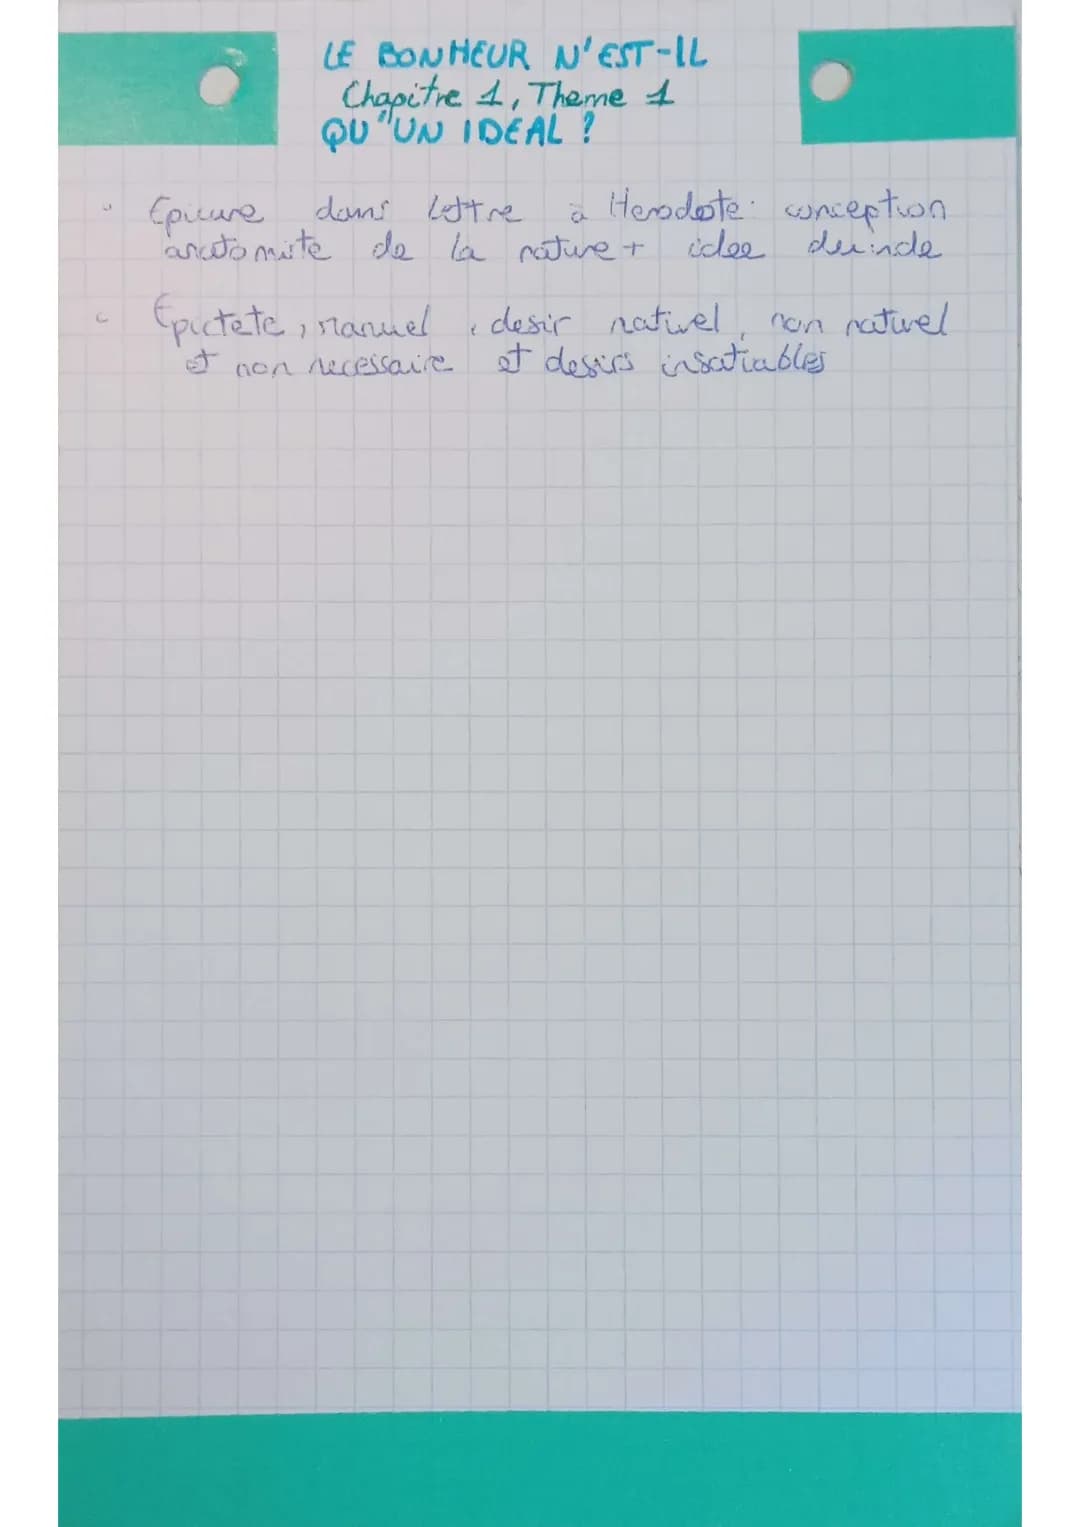 LE BONHEUR N'EST-IL
Chapitre 1, Theme 1
QU'UN IDEAL ?
Epicure dans Lettre à Herodote: conception
de la nature + idee
Epictete, manuel, desir naturel, non naturel
et non necessaire et desirs insatiables